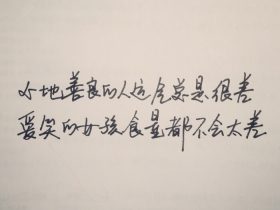 心地善良的人运气总是很差
爱笑的女孩食量都不会太差